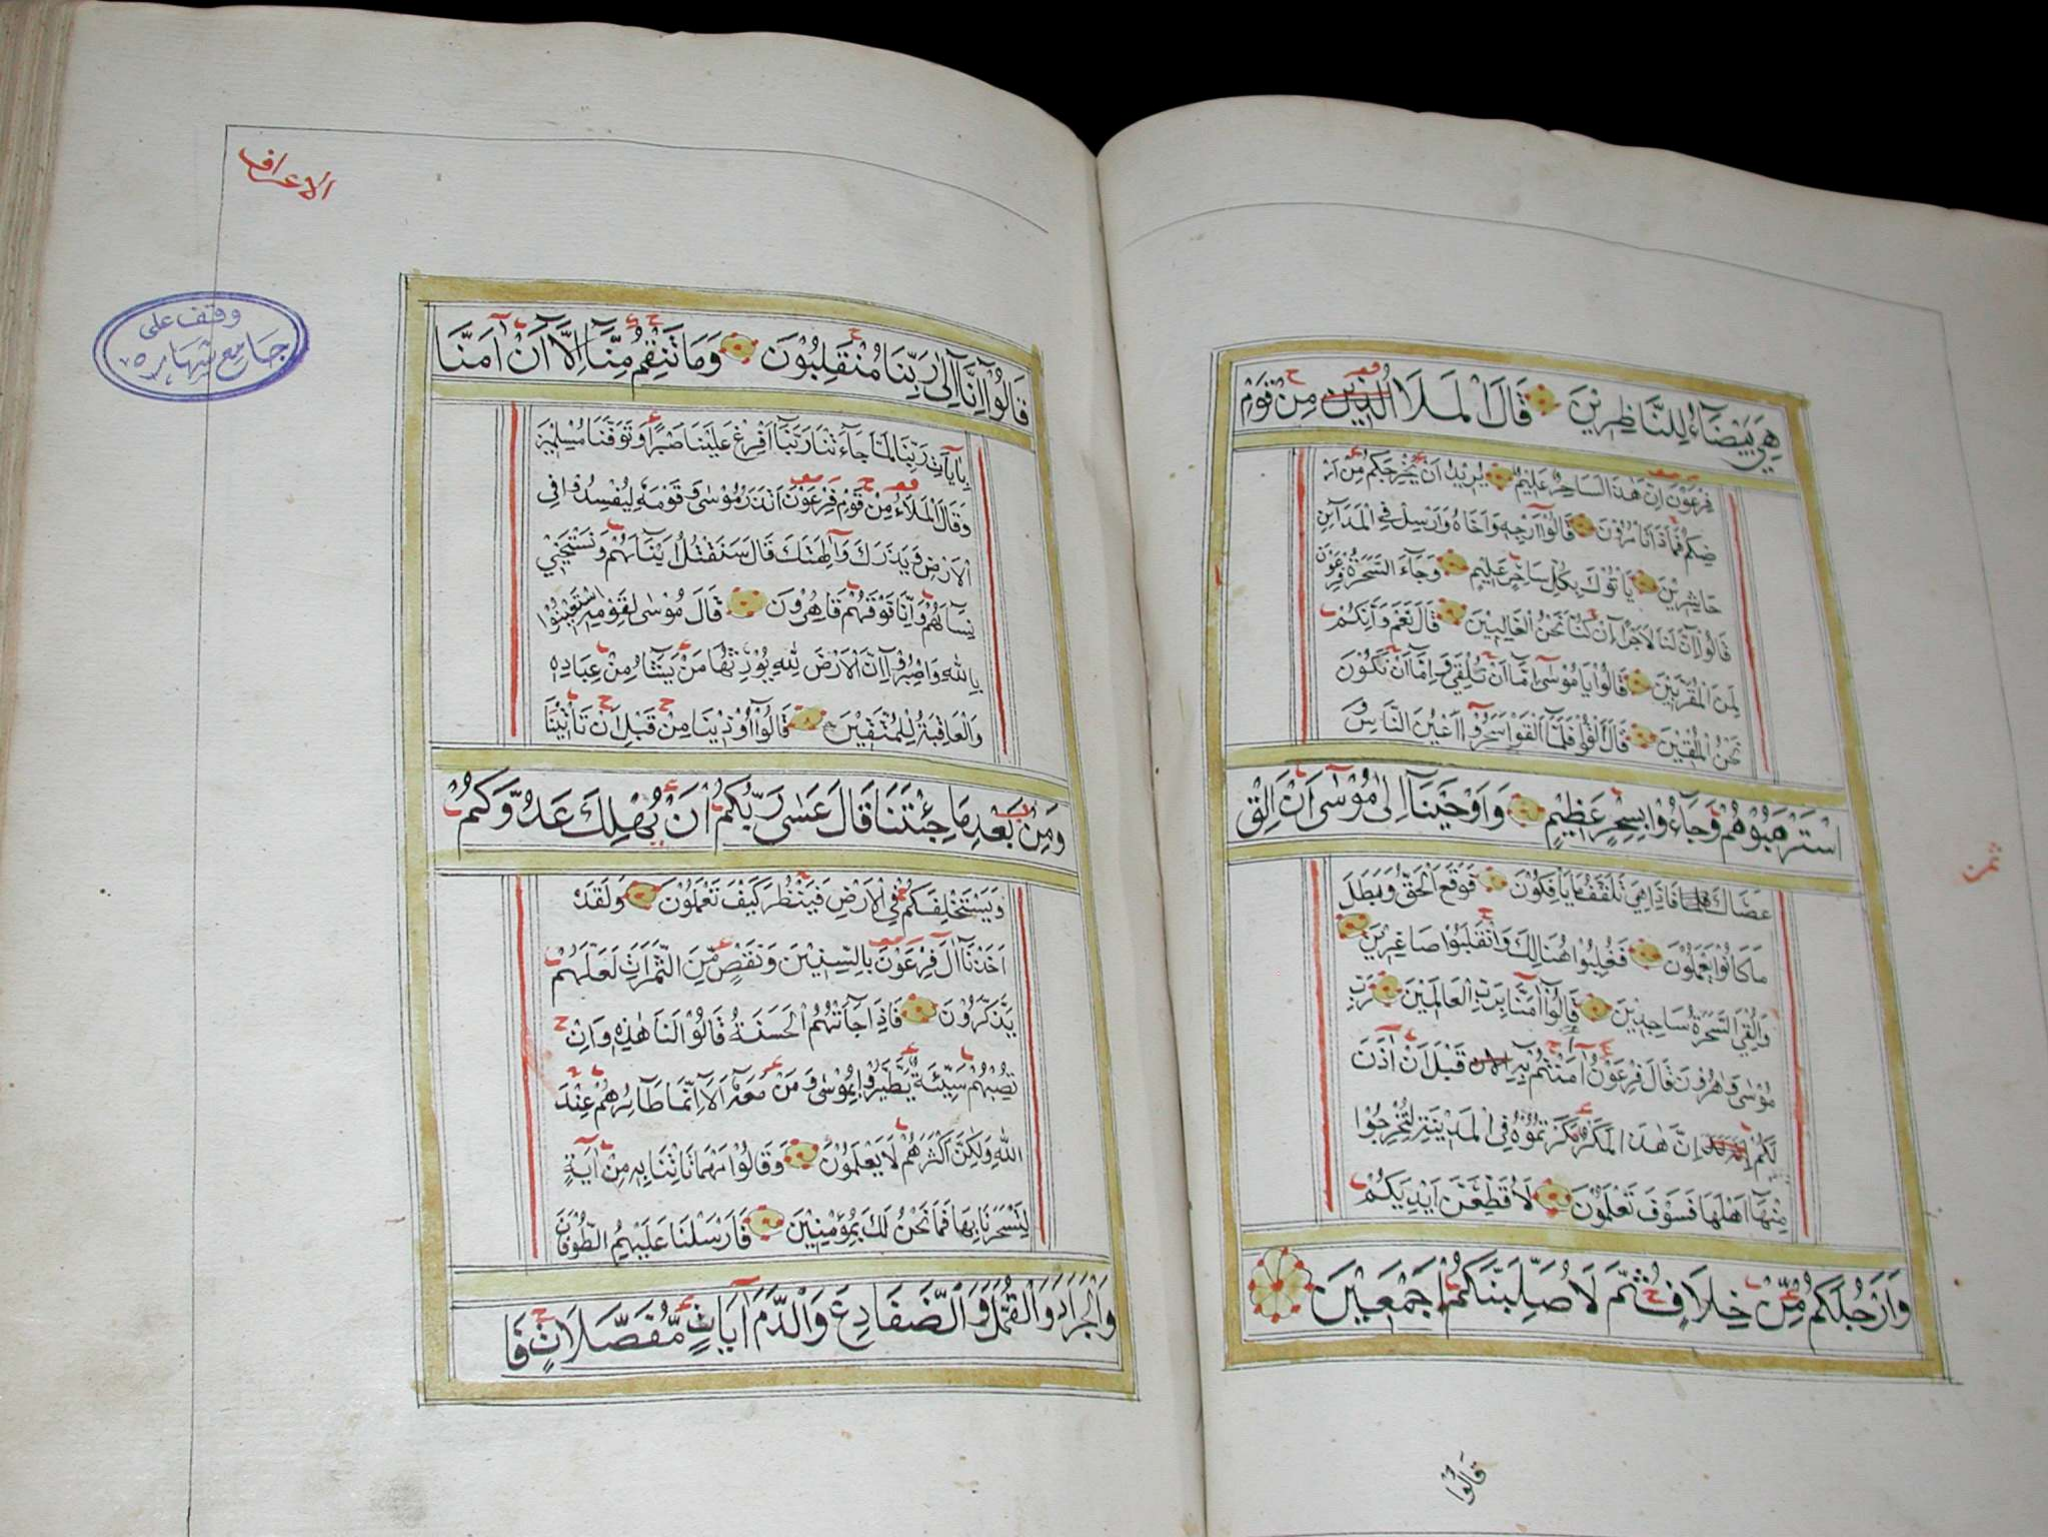 هِيَ بَيْضَاءُ لِلنَّاظِرِيْنَ قَالَ الْمَلَأُ الَّذِيْنَ مِنْ قَوْمِ
فِرْعَوْنَ اِنَّ هٰذَا لَسَاحِرٌ عَلِيْمٌ يُرِيْدُ اَنْ يُخْرِجَكُمْ مِنْ اَرْ
ضِكُمْ فَمَاذَا تَاْمُرُوْنَ قَالُوْا اَرْجِهِ وَاَخَاهُ وَاَرْسِلْ فِي الْمَدَآئِنِ
حَاشِرِيْنَ يَاْتُوْكَ بِكُلِّ سَاحِرٍ عَلِيْمٍ وَجَآءَ السَّحَرَةُ فِرْعَوْنَ
قَالُوْا اِنَّ لَنَا لَاَجْرًا اِنْ كُنَّا نَحْنُ الْغَالِبِيْنَ قَالَ نَعَمْ وَاِنَّكُمْ
لَمِنَ الْمُقَرَّبِيْنَ قَالُوْا يَا مُوْسٰى اِمَّا اَنْ تُلْقِيَ وَاِمَّا اَنْ نَكُوْنَ
نَحْنُ الْمُلْقِيْنَ قَالَ اَلْقُوْا فَلَمَّا اَلْقَوْا سَحَرُوْا اَعْيُنَ النَّاسِ
وَاسْتَرْهَبُوْهُمْ وَجَآءُوْا بِسِحْرٍ عَظِيْمٍ وَاَوْحَيْنَا اِلٰى مُوْسٰى اَنْ اَلْقِ
عَصَاكَ فَاِذَا هِيَ تَلْقَفُ مَا يَاْفِكُوْنَ فَوَقَعَ الْحَقُّ وَبَطَلَ
مَا كَانُوْا يَعْمَلُوْنَ فَغُلِبُوْا هُنَالِكَ وَانْقَلَبُوْا صَاغِرِيْنَ
وَاُلْقِيَ السَّحَرَةُ سَاجِدِيْنَ قَالُوْا اٰمَنَّا بِرَبِّ الْعَالَمِيْنَ رَبِّ
مُوْسٰى وَهٰرُوْنَ قَالَ فِرْعَوْنُ اٰمَنْتُمْ بِهِ قَبْلَ اَنْ اٰذَنَ
لَكُمْ اِنَّ هٰذَا لَمَكْرٌ مَكَرْتُمُوْهُ فِي الْمَدِيْنَةِ لِتُخْرِجُوْا
مِنْهَا اَهْلَهَا فَسَوْفَ تَعْلَمُوْنَ لَاُقَطِّعَنَّ اَيْدِيَكُمْ
وَاَرْجُلَكُمْ مِّنْ خِلَافٍ ثُمَّ لَاُصَلِّبَنَّكُمْ اَجْمَعِيْنَ
قالوا
ثمن
الاعراف
وقف على
جامع شهاره
قَالُوْا اِنَّا اِلٰى رَبِّنَا مُنْقَلِبُوْنَ وَمَا تَنْقِمُ مِنَّا اِلَّا اَنْ اٰمَنَّا
بِاٰيَاتِ رَبِّنَا لَمَّا جَآءَتْنَا رَبَّنَا اَفْرِغْ عَلَيْنَا صَبْرًا وَتَوَفَّنَا مُسْلِمِيْنَ
وَقَالَ الْمَلَاُ مِنْ قَوْمِ فِرْعَوْنَ اَتَذَرُ مُوْسٰى وَقَوْمَهُ لِيُفْسِدُوْا فِي
الْاَرْضِ وَيَذَرَكَ وَاٰلِهَتَكَ قَالَ سَنَقْتُلُ اَبْنَآءَهُمْ وَنَسْتَحْيِيْ
نِسَآءَهُمْ وَاِنَّا فَوْقَهُمْ قَاهِرُوْنَ قَالَ مُوْسٰى لِقَوْمِهِ اسْتَعِيْنُوْا
بِاللهِ وَاصْبِرُوْا اِنَّ الْاَرْضَ لِلّٰهِ يُوْرِثُهَا مَنْ يَشَآءُ مِنْ عِبَادِهِ
وَالْعَاقِبَةُ لِلْمُتَّقِيْنَ قَالُوْا اُوْذِيْنَا مِنْ قَبْلِ اَنْ تَاْتِيَنَا
وَمِنْ بَعْدِ مَا جِئْتَنَا قَالَ عَسٰى رَبُّكُمْ اَنْ يُهْلِكَ عَدُوَّكُمْ
وَيَسْتَخْلِفَكُمْ فِي الْاَرْضِ فَيَنْظُرَ كَيْفَ تَعْمَلُوْنَ وَلَقَدْ
اَخَذْنَا اٰلَ فِرْعَوْنَ بِالسِّنِيْنَ وَنَقْصٍ مِّنَ الثَّمَرَاتِ لَعَلَّهُمْ
يَذَّكَّرُوْنَ فَاِذَا جَآءَتْهُمُ الْحَسَنَةُ قَالُوْا لَنَا هٰذِهِ وَاِنْ
تُصِبْهُمْ سَيِّئَةٌ يَطَّيَّرُوْا بِمُوْسٰى وَمَنْ مَعَهُ اَلَا اِنَّمَا طَآئِرُهُمْ عِنْدَ
اللهِ وَلٰكِنَّ اَكْثَرَهُمْ لَا يَعْلَمُوْنَ وَقَالُوْا مَهْمَا تَاْتِنَا بِهِ مِنْ اٰيَةٍ
لِتَسْحَرَنَا بِهَا فَمَا نَحْنُ لَكَ بِمُؤْمِنِيْنَ فَاَرْسَلْنَا عَلَيْهِمُ الطُّوْفَانَ
وَالْجَرَادَ وَالْقُمَّلَ وَالضَّفَادِعَ وَالدَّمَ اٰيَاتٍ مُّفَصَّلَاتٍ فَا